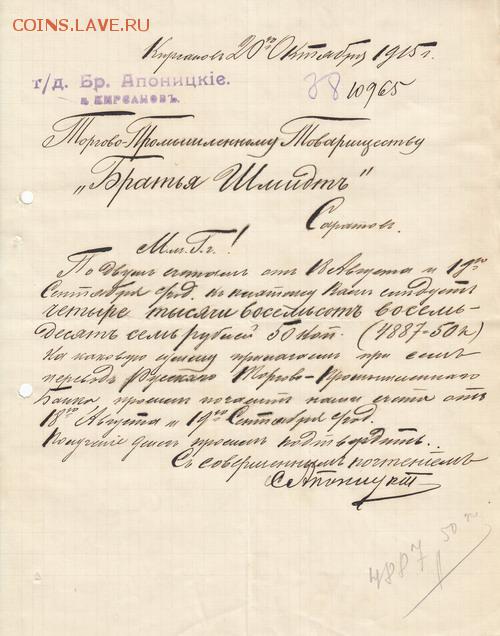 COINS.LAVE.RU
Кирсановъ 20го Октября 1915 г.
т/д. Бр. Апоницкіе.
в КИРСАНОВЪ.
78 10965
Торгово-Промышленному Товариществу
„Братья Шмидтъ"
Саратов.
М.м. Г.г.!
По двумъ счетамъ отъ 18 Августа и 19го
Сентября с/год. къ платежу Вамъ слѣдуетъ
четыре тысячи восемьсотъ восемь-
десятъ семь рублей 50 коп. (4887-50 к)
На каковую сумму прилагаем при семъ
переводъ Русскаго Торгово-Промышленнаго
Банка просимъ погасить наши счета отъ
18го Августа и 19го Сентября с/год.
Полученіе денегъ просимъ подтвердить.
Съ совершеннымъ почтеніемъ
С Апоницкій
4887 50 к